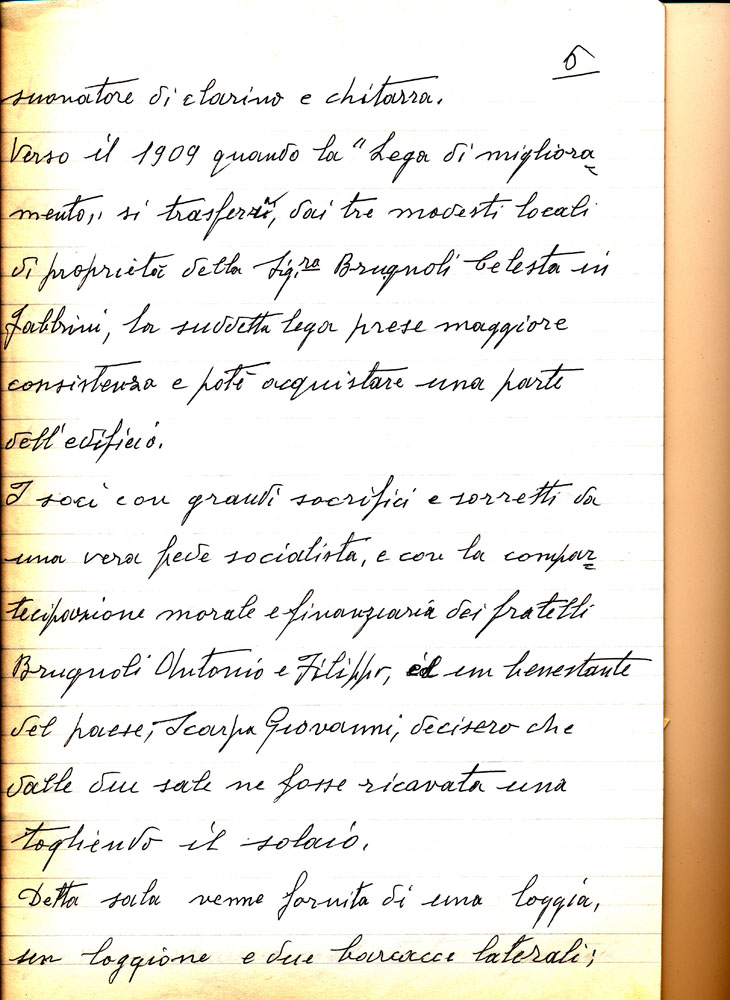 5
suonatore di clarino e chitarra.
Verso il 1909 quando la "Lega di migliora=
mento,, si trasferì, dai tre modesti locali
di proprietà della Sig.ra Brugnoli Celesta in
Fabbrini, la suddetta lega prese maggiore
consistenza e potè acquistare una parte
dell'edificio.
I soci con grandi sacrifici e sorretti da
una vera fede socialista, e con la compar=
tecipazione morale e finanziaria dei fratelli
Brugnoli Antonio e Filippo, ed un benestante
del paese, Scarpa Giovanni, decisero che
dalle due sale ne fosse ricavata una
togliendo il solaio.
Detta sala venne fornita di una loggia,
un loggione e due barcacce laterali;